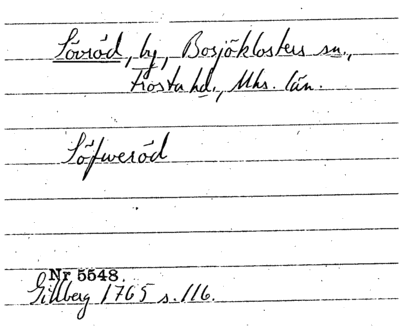 Sövröd, by, Bosjöklosters sn.,
Frosta hd., Mhs. län.
Söfweröd
Nr 5548.
Gillberg 1765 s. 116.